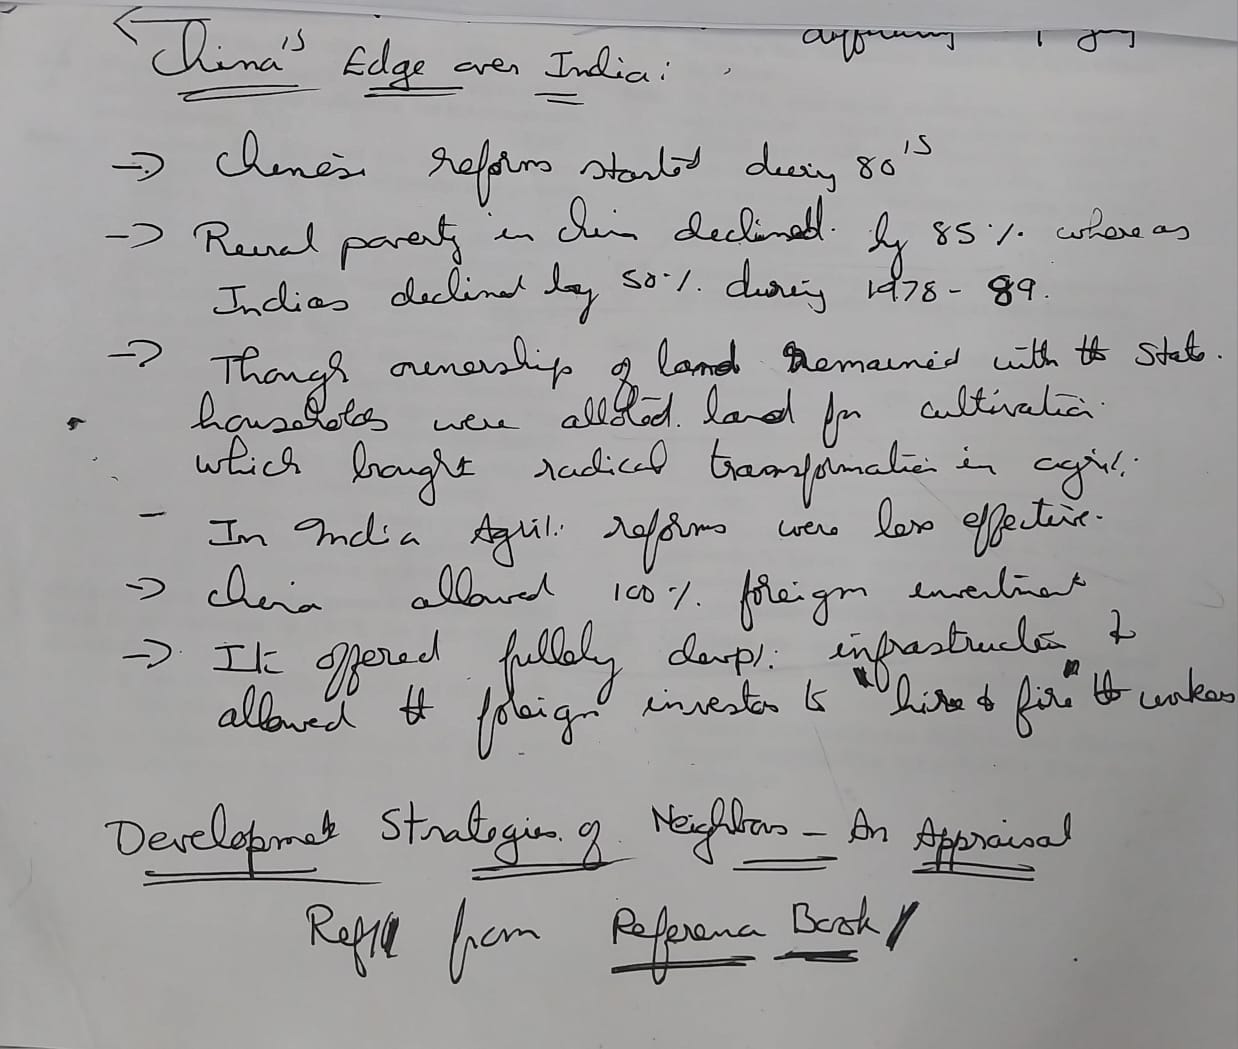 China's Edge over India:
→ Chinese reforms started during 80's
→ Rural poverty in China declined by 85% whereas
Indias declined by 50% during 1978-89.
→ Though ownership of land remained with the State.
households were alloted land for cultivation
which brought radical transformation in agril.
- In India Agril. reforms were less effective.
→ China allowed 100% foreign investment
→ It offered fullely devpl. infrastructure &
allowed the foreign investors to "hire & fire" the workers
Development Strategies of Neighbors - An Appraisal
from Reference Book